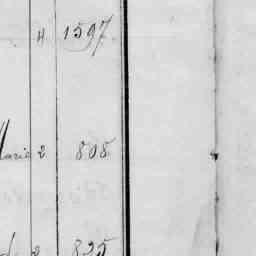 4 1597
Marie 2 808
2 825